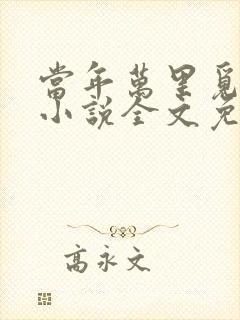 當年萬里覓
小說全文免
高永文